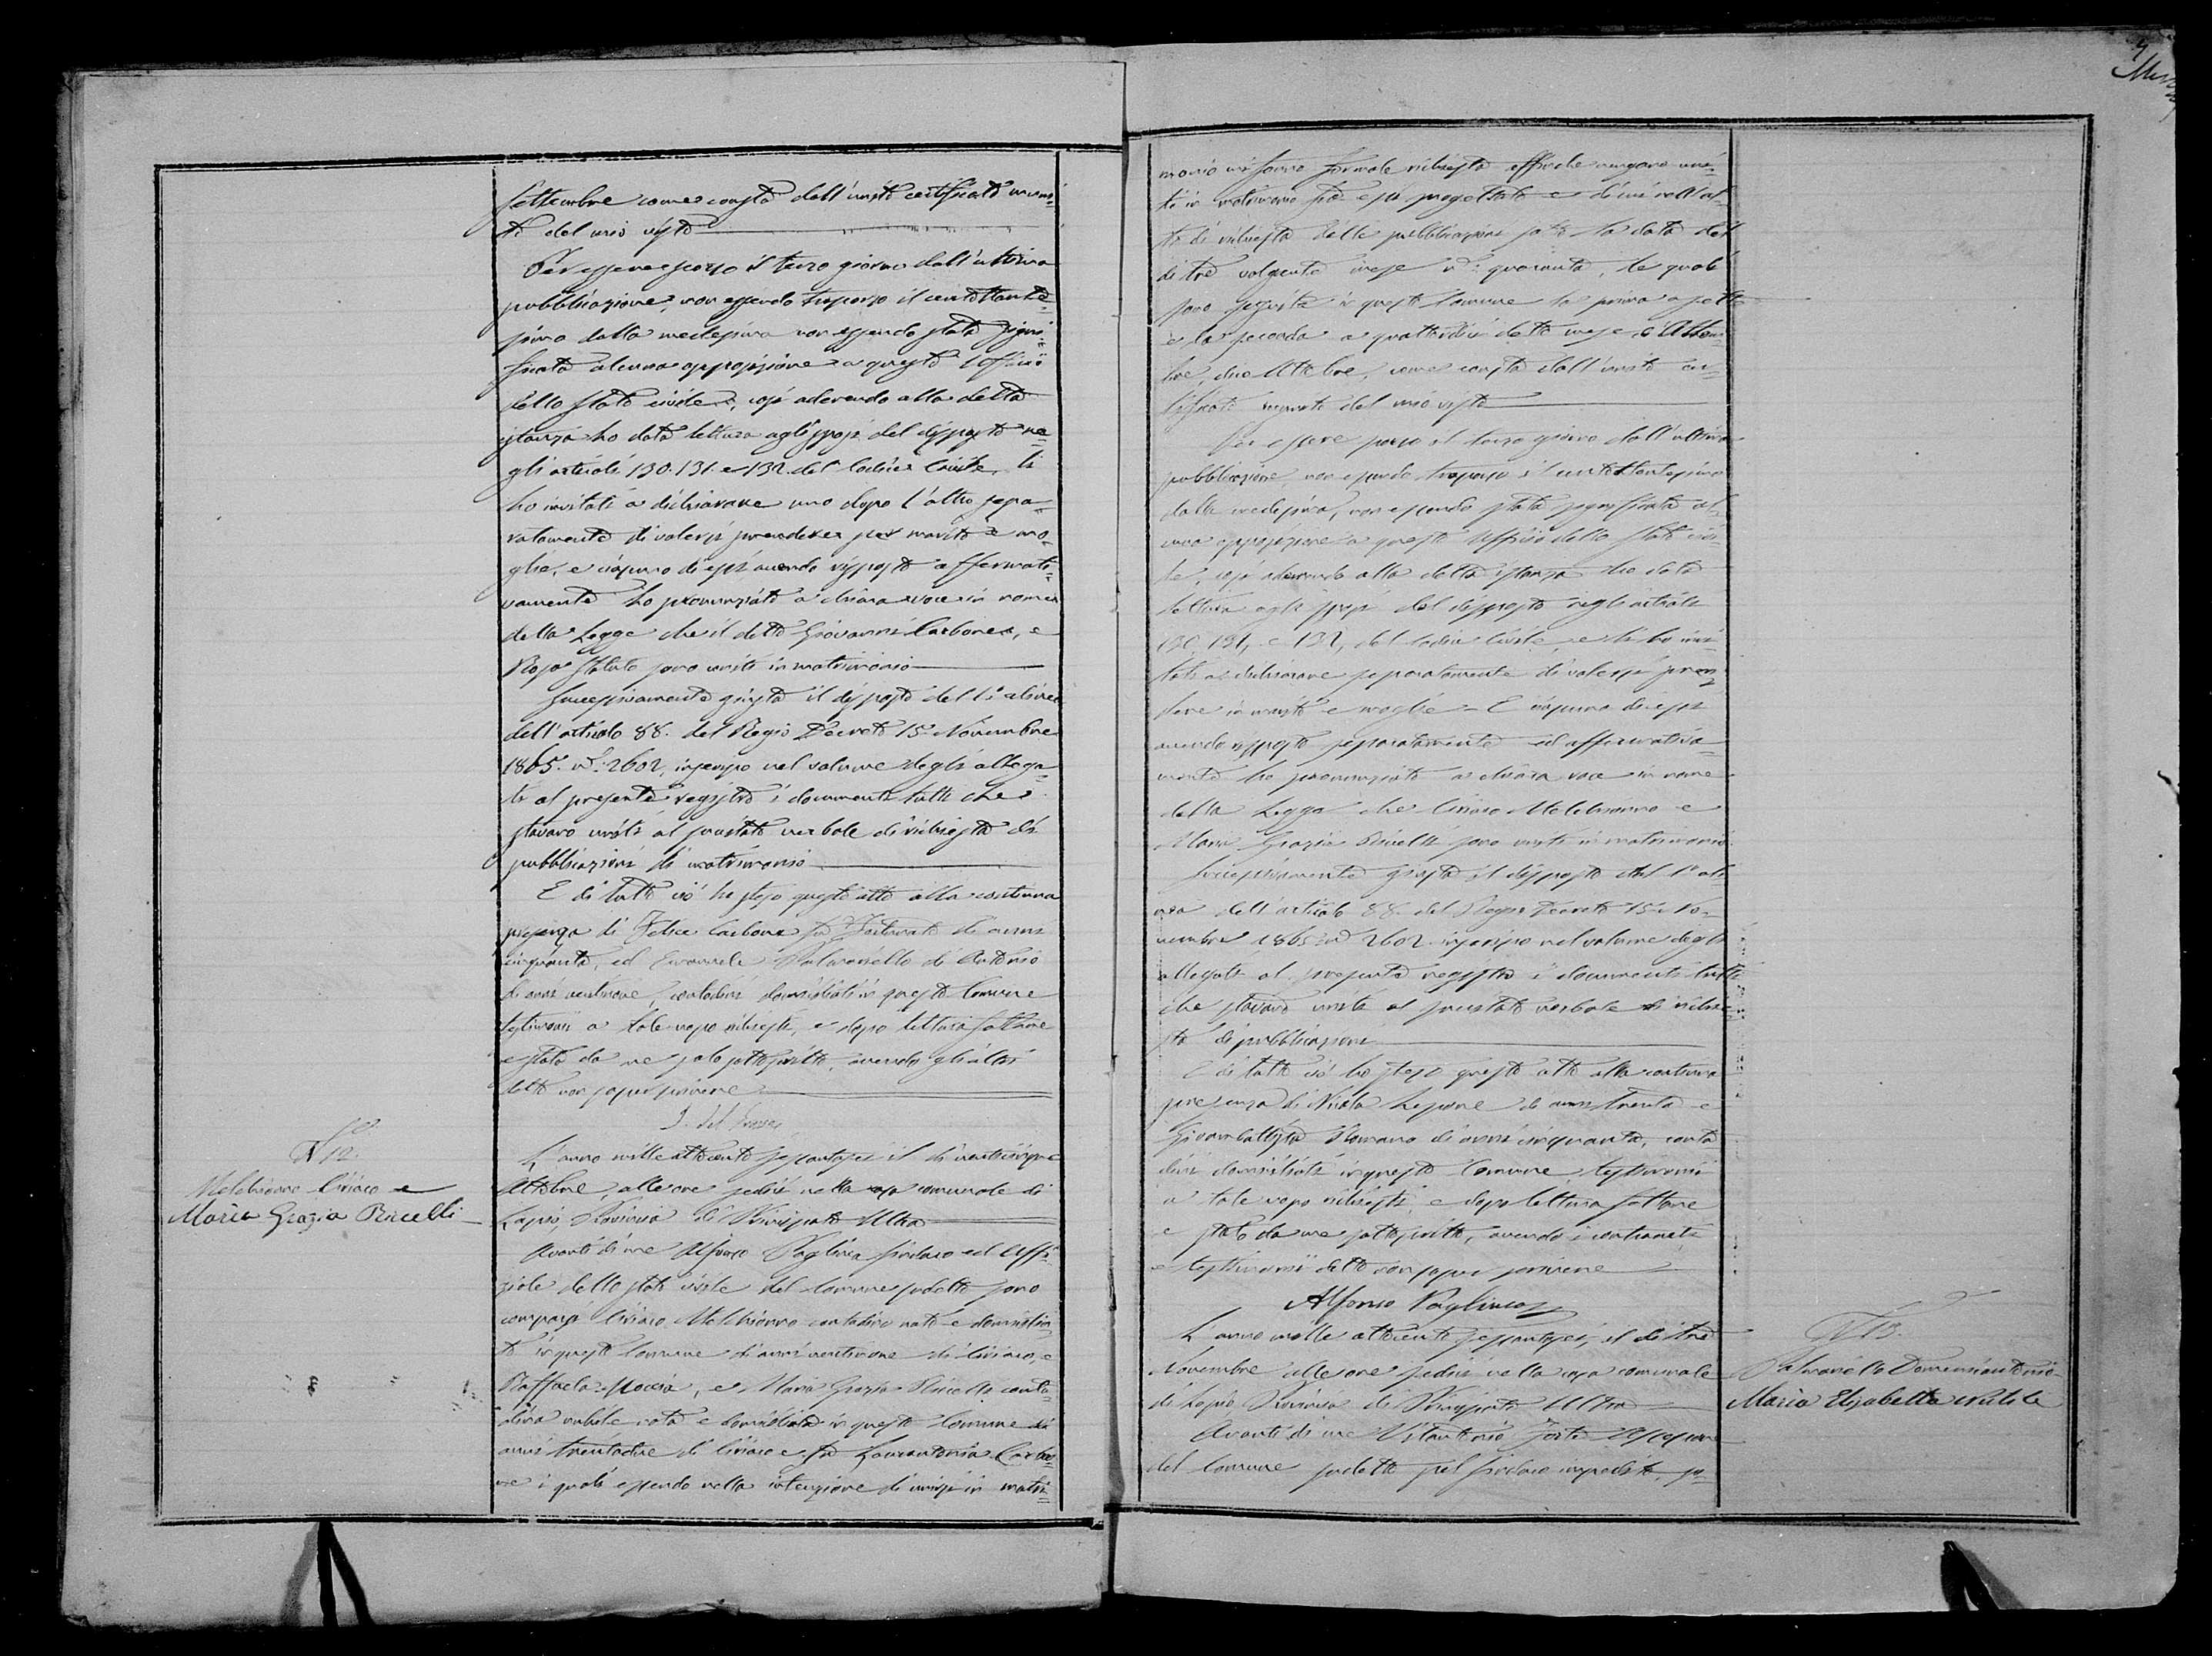 Settembre come consta dall'unito certificato muni-
to del mio visto
Per essere scorso il terzo giorno dall'ultima
pubblicazione, non essendo trascorso il centottante-
simo dalla medesima non essendo stata signi-
ficata alcuna opposizione a questo Officio
dello Stato civile, così aderendo alla detta
istanza ho data lettura agli sposi del disposto ne-
gli articoli 130. 131. e 132. del Codice Civile, li
ho invitati a dichiarare uno dopo l'altro sepa-
ratamente di volersi prendere per marito e mo-
glie, e ciascuno di essi avendo risposto affermati-
vamente ho pronunziato a chiara voce in nome
della Legge che il detto Giovanni Carbone, e
Rosa sono uniti in matrimonio
Successivamente giusta il disposto del 1° alinea
dell'articolo 88. del Regio Decreto 15 Novembre
1865. n° 2602, inserisco nel volume degli allega-
ti al presente registro i documenti tutti che
stavano uniti al precitato verbale di richiesta di
pubblicazioni di matrimonio
E di tutto ciò ho steso questo atto alla continua
presenza di Felice Carbone fu Fortunato di anni
cinquanta, ed Emanuele Palmariello di Antonio
di anni ventinove, contadini domiciliati in questo Comune
testimoni a tale uopo richiesti, e dopo lettura fattane
è stato da me solo sottoscritto, avendo gli altri
detto non saper scrivere
N 12.
Melchionno Ciriaco e
Maria Grazia Pericelli
L'anno mille ottocento sessantasei il dì venticinque
Ottobre, alle ore sedici nella casa comunale di
Lapio, Provincia di Principato Ultra
Avanti di me Alfonso Pagliuca Sindaco ed Uffi-
ziale dello stato civile del Comune sudetto sono
comparsi Ciriaco Melchionno contadino nato e domicilia-
to in questo Comune d'anni ventinove di Ciriaco, e
Raffaela , e Maria Grazia conta-
dina nubile nata e domiciliata in questo Comune di
anni trentadue di Ciriaco e fu Laurantonia Carbo-
ne i quali essendo nella intenzione di unirsi in matri-
monio mi fanno formale richiesta affinche vengano uni-
ti in matrimonio fra essi progettato e di cui nell'at-
to di richiesta delle pubblicazioni sotto la data del
dì tre volgente mese n° quaranta, le quali
sono seguite in questo Comune la prima a sette
e la seconda a quattordici detto mese di Otto-
bre, dico Ottobre, come consta dall'unito cer-
tificato munito del mio visto
Per essere scorso il terzo giorno dall'ultima
pubblicazione, non essendo trascorso il centottantesimo
dalla medesima, non essendo stata significata al-
cuna opposizione a questo Uffizio dello Stato civi-
le, così aderendo alla detta istanza ho data
lettura agli sposi del disposto negli articoli
130. 131, e 132, del Codice Civile, e li ho invi-
tati a dichiarare separatamente di volersi pren-
dere in marito e moglie - E ciascuno di essi
avendo risposto separatamente ed affermativa-
mente ho pronunziato a chiara voce in nome
della Legge che Ciriaco Melchionno e
Maria Grazia Pericelli sono uniti in matrimonio.
Successivamente giusta il disposto del 1° ali-
nea dell'articolo 88. del Regio Decreto 15. No-
vembre 1865 n° 2602. inserisco nel volume degli
allegati al presente registro i documenti tutti
che stavano uniti al precitato verbale di richie-
sta di pubblicazioni
E di tutto ciò ho steso questo atto alla continua
presenza di Nicola Lepore di anni trenta e
Giovambattista Romano di anni cinquanta, conta-
dini domiciliati in questo Comune, testimoni
a tale uopo richiesti, e dopo lettura fattane
è stato da me sottoscritto, avendo i contraenti
e testimoni detto non saper scrivere
Alfonso Pagliuca
N 13.
Palmariello Domenicantonio
Maria Elisabetta
L'anno mille ottocento sessantasei, il dì tre
Novembre alle ore sedici nella casa comunale
di Lapio, Provincia di Principato Ultra
Avanti di me Vitantonio Assessore
del Comune sudetto pel Sindaco impedito, so-